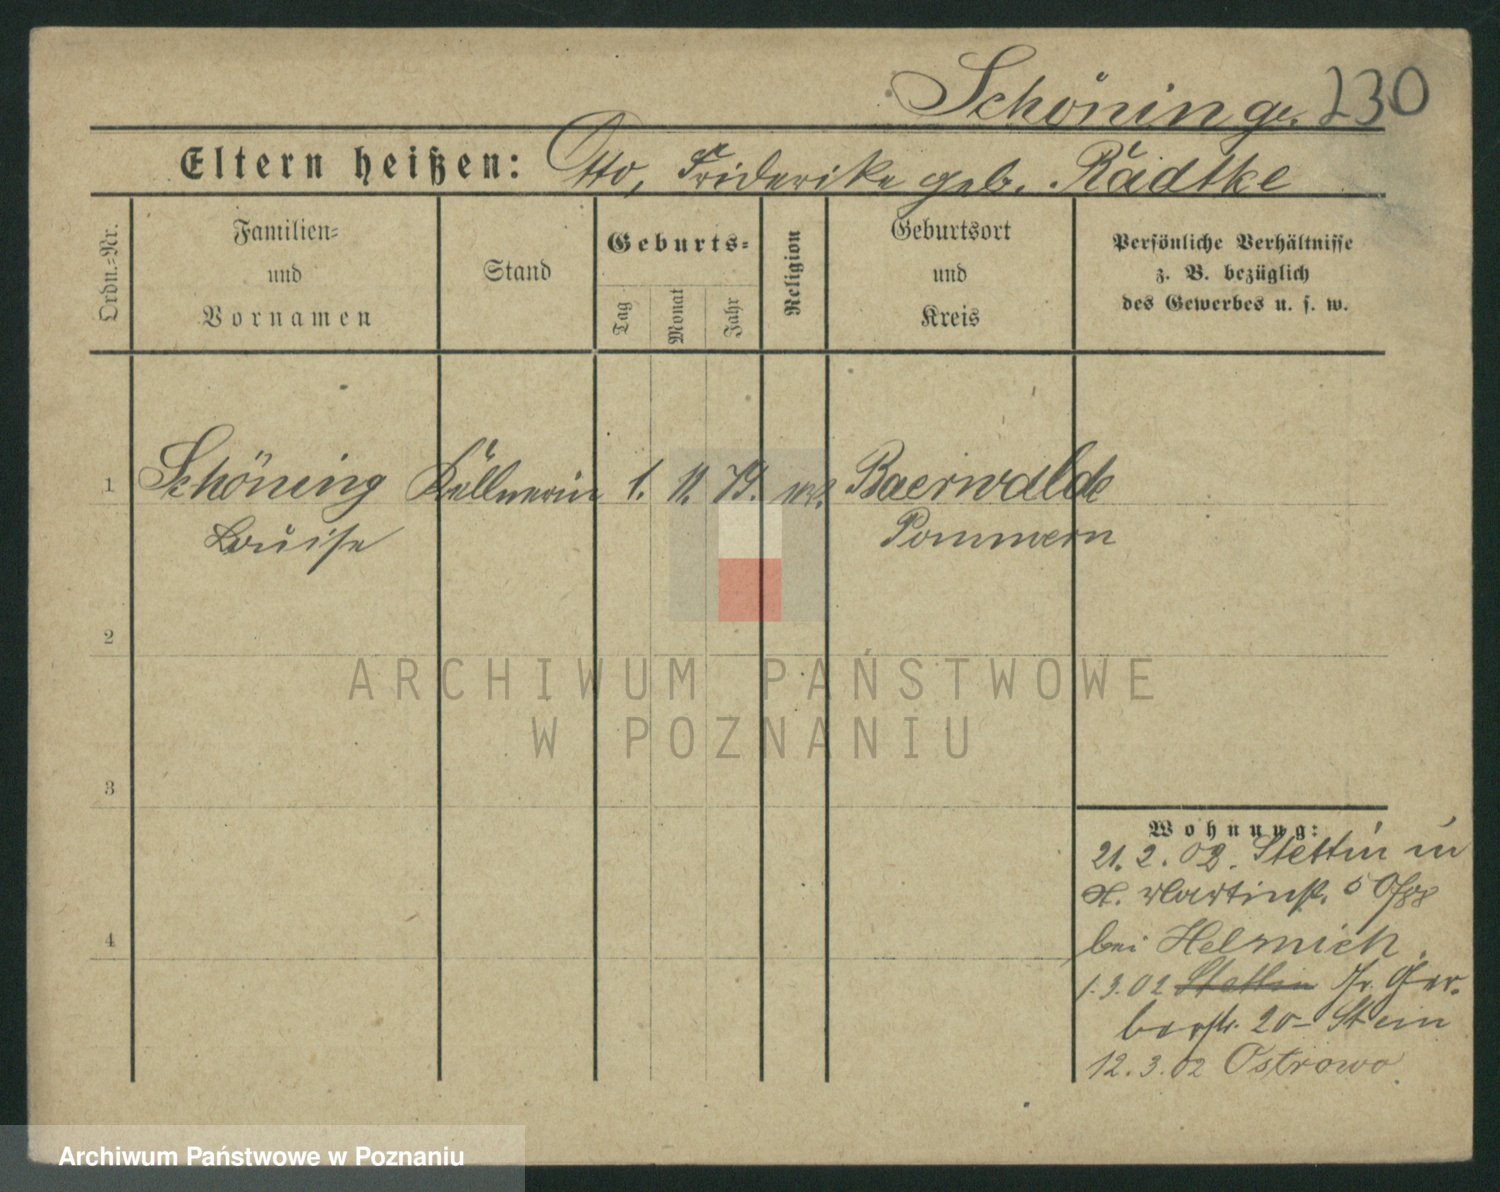 Schöning. 230
Eltern heißen: Otto, Friderike geb. Radtke
Ordn.-Nr.
Familien-
und
Vornamen
Stand
Geburts-
Tag
Monat
Jahr
Religion
Geburtsort
und
Kreis
Persönliche Verhältnisse
z. B. bezüglich
des Gewerbes u. s. w.
1 Schöning Kellnerin 1. 11. 79. Baerwalde
Louise Pommern
2
ARCHIWUM PAŃSTWOWE
W POZNANIU
3
Wohnung:
21. 2. 02. Stettin in
St. Martinstr. 5
bei Helmich.
4
1.3.02 Stettin Gr. Ger-
berstr. 20 - Stein
12.3.02 Ostrowo
Archiwum Państwowe w Poznaniu